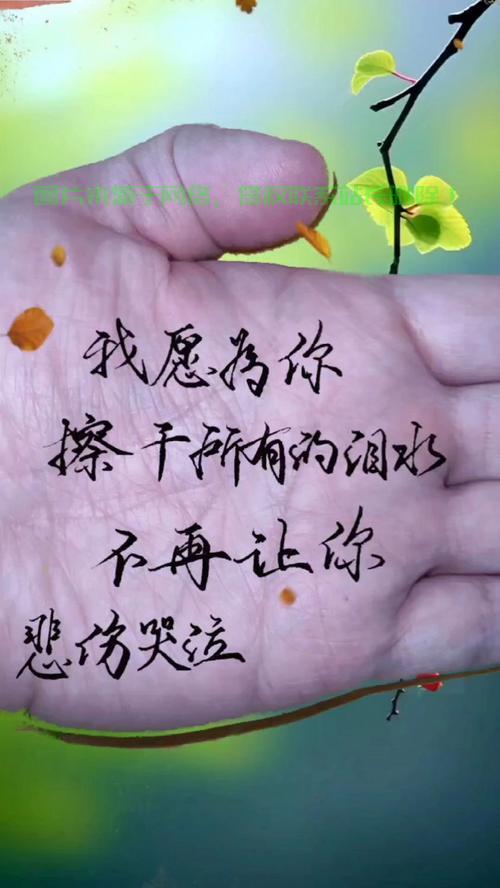 图片来源于网络，侵权联系站长删除！
我愿為你
擦干所有的泪水
不再让你
悲伤哭泣